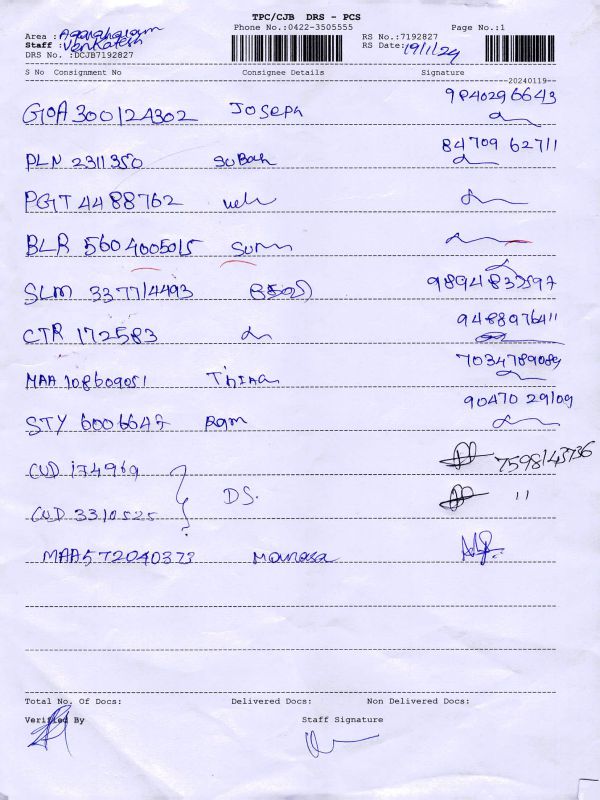 TPC/CJB DRS - PCS
Phone No.:0422-3505555
Page No.:1
Area : Agaraharam
Staff : Venkatesh
DRS No. :DCJB7192827
RS No.:7192827
RS Date: 19/1/24
S No Consignment No Consignee Details Signature
20240119
GOA 300124302 Joseph 9840296643
PLN 2311350 SuBash 84709 62711
PGT 4488762
BLR 5604005015
SLM 337714493 தேவி 9894833597
CTR 172583 9488976411
MAA 108609051 7034789089
STY 6006647 Ram 90470 29109
CUD 174969 7598143736
DS.
CUD 3310525 "
MAA572040373 Manasa
Total No. Of Docs: Delivered Docs: Non Delivered Docs:
Verified By Staff Signature